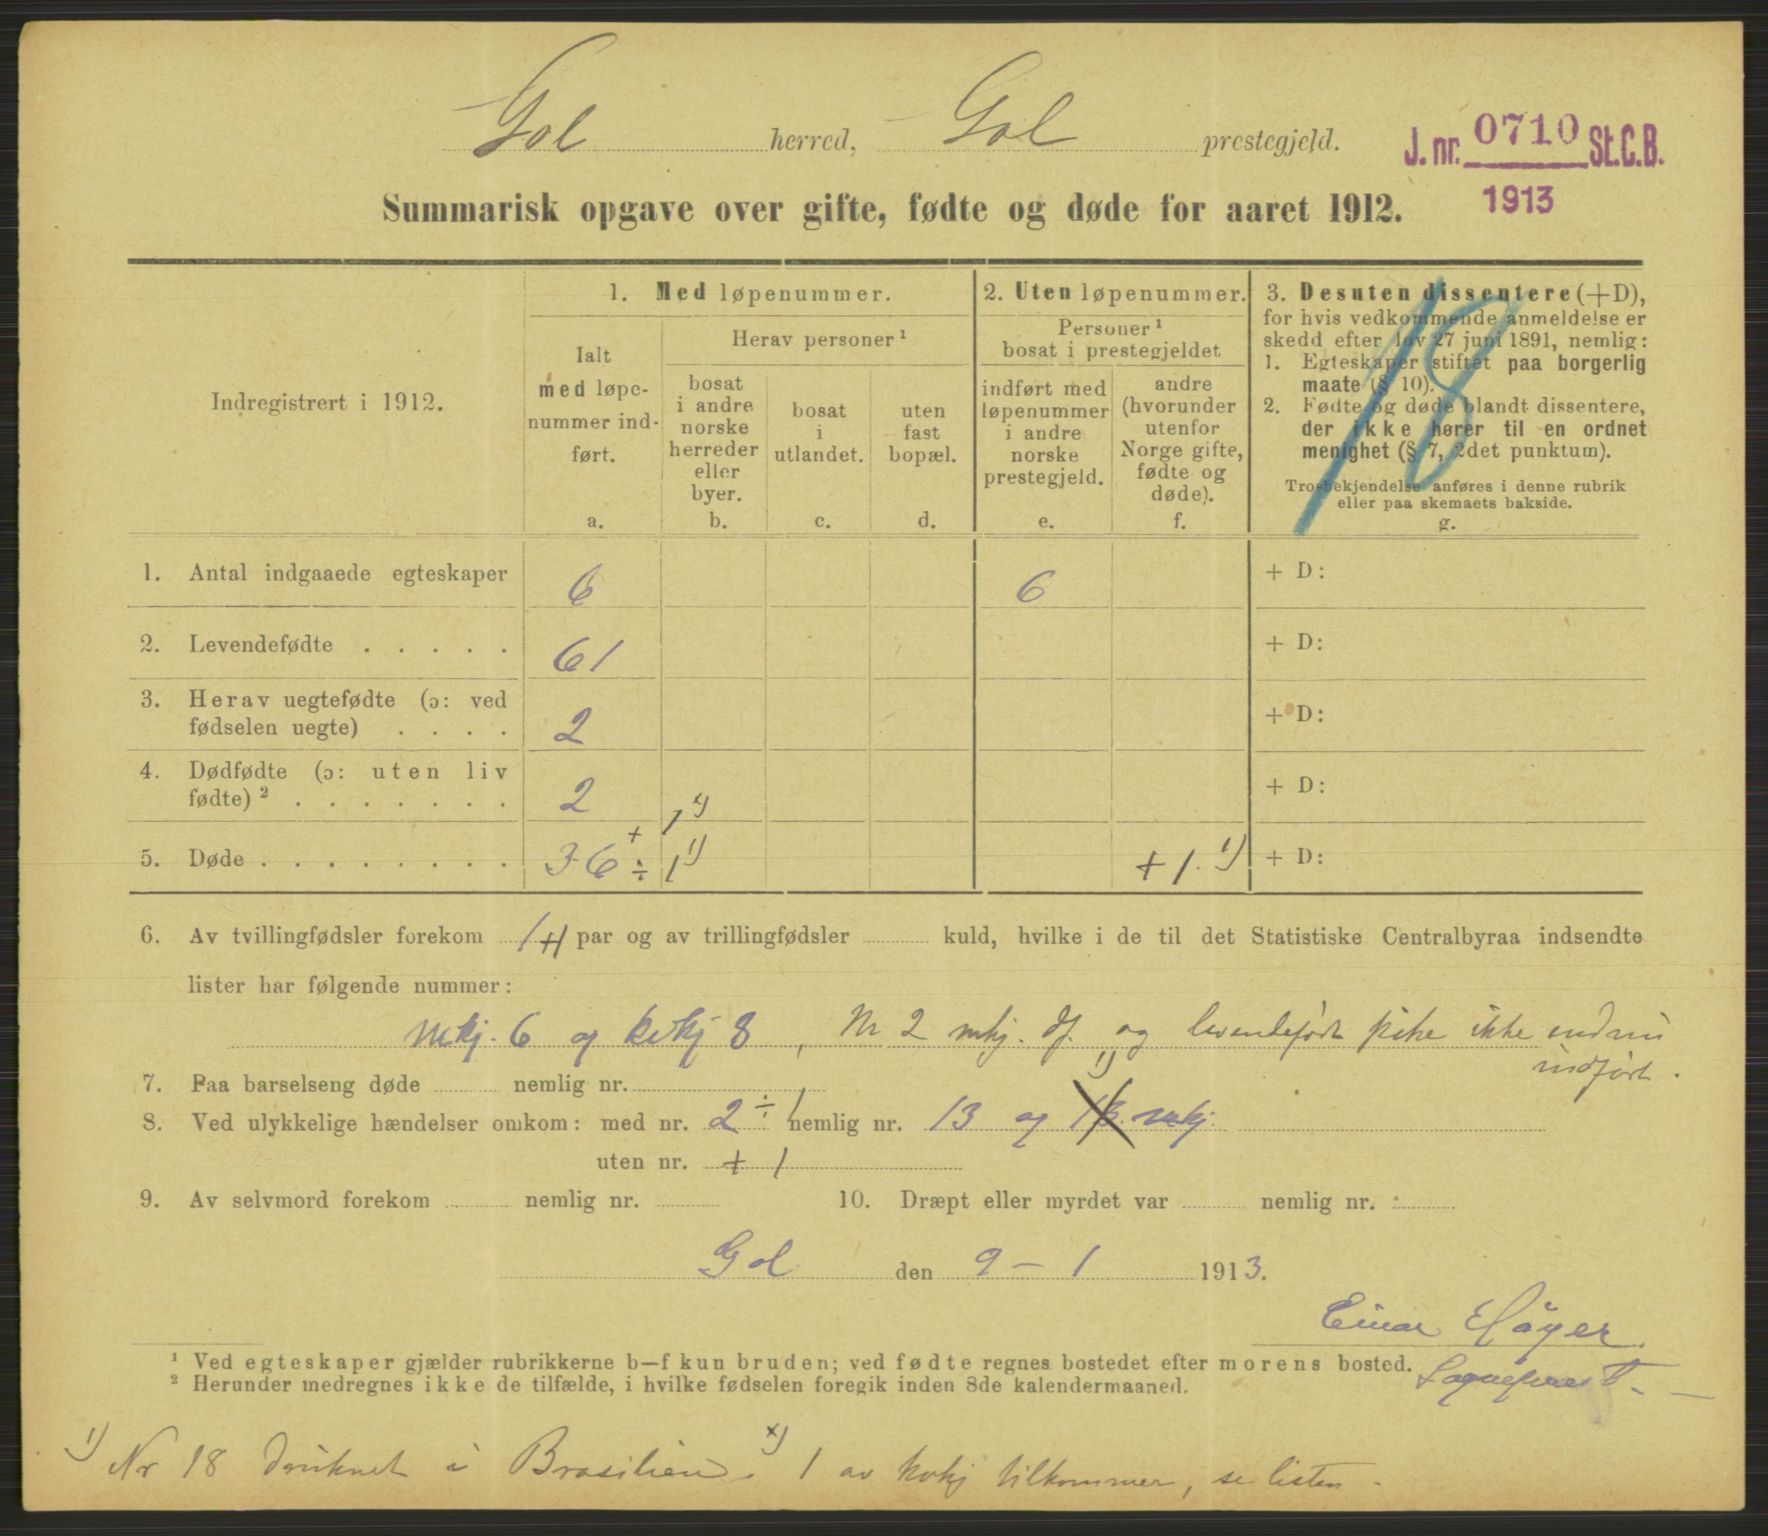 Gol herred, Gol prestegjeld.
J. nr. 0710 St.C.B.
1913
Summarisk opgave over gifte, fødte og døde for aaret 1912.
Indregistrert i 1912.
1. Med løpenummer.
Ialt
med løpe-
nummer ind-
ført.
a.
Herav personer ¹
bosat
i andre
norske
herreder
eller
byer.
b.
bosat
i
utlandet.
c.
uten
fast
bopæl.
d.
2. Uten løpenummer.
Personer ¹
bosat i prestegjeldet
indført med
løpenummer
i andre
norske
prestegjeld.
e.
andre
(hvorunder
utenfor
Norge gifte,
fødte og
døde).
f.
3. Desuten dissentere (+D),
for hvis vedkommende anmeldelse er
skedd efter lov 27 juni 1891, nemlig:
1. Egteskaper stiftet paa borgerlig
maate (§ 10).
2. Fødte og døde blandt dissentere,
der ikke hører til en ordnet
menighet (§ 7, 2det punktum).
Trosbekjendelse anføres i denne rubrik
eller paa skemaets bakside.
g.
18
1. Antal indgaaede egteskaper 6 6 + D:
2. Levendefødte . . . . . 61 + D:
3. Herav uegtefødte (ɔ: ved
fødselen uegte) . . . . 2 + D:
4. Dødfødte (ɔ: uten liv
fødte) ² . . . . . . . 2 + D:
+ 1 x)
5. Døde . . . . . . . . 36 ÷ 1 ¹) + 1. ¹) + D:
6. Av tvillingfødsler forekom 1+1 par og av trillingfødsler ..... kuld, hvilke i de til det Statistiske Centralbyraa indsendte
lister har følgende nummer:
mkj. 6 og kvkj 8, Nr 2 mkj. df. og levendefødt pike ikke endnu
indført.
7. Paa barselseng døde ..... nemlig nr.
8. Ved ulykkelige hændelser omkom: med nr. 2 ÷ 1 nemlig nr. 13 og 18 mkj. ¹)
uten nr. + 1
9. Av selvmord forekom ..... nemlig nr. ..... 10. Dræpt eller myrdet var ..... nemlig nr. .....
Gol den 9 – 1 1913.
Einar Høyer
Sogneprest.
¹ Ved egteskaper gjælder rubrikkerne b—f kun bruden; ved fødte regnes bostedet efter morens bosted.
² Herunder medregnes ikke de tilfælde, i hvilke fødselen foregik inden 8de kalendermaaned.
¹) Nr 18 druknet i Brasilien. x) 1 av kvkj tilkommer, se listen.